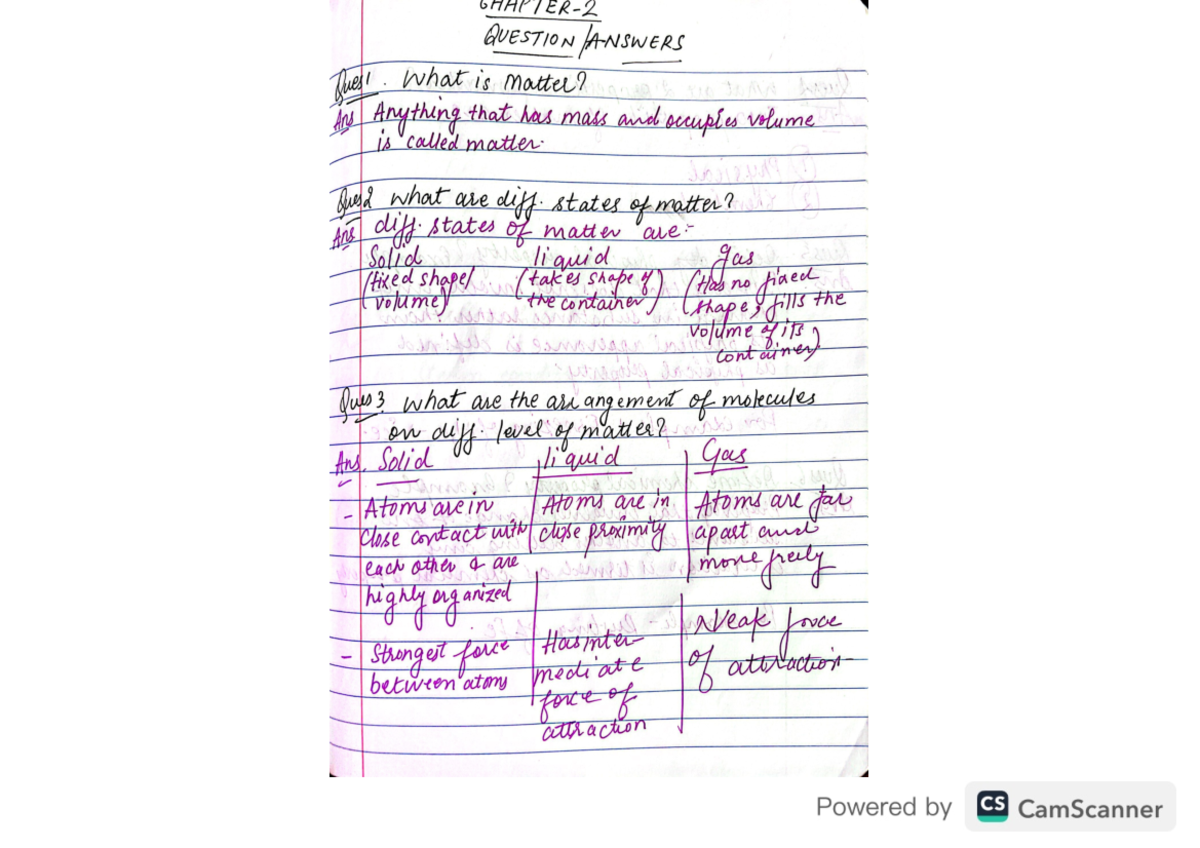 CHAPTER-2
QUESTION/ANSWERS
Ques1. What is Matter?
Ans Anything that has mass and occupies volume
is called matter.
Ques2 What are diff. states of matter?
Ans diff. states of matter are:-
Solid liquid gas
(fixed shape/ (takes shape of (Has no fixed
volume) the container) shape, fills the
volume of its
container)
Ques 3 What are the arrangement of molecules
on diff. level of matter?
Ans. Solid liquid Gas
- Atoms are in Atoms are in Atoms are far
close contact with close proximity apart and
each other & are move freely
highly organized
- Strongest force Has inter Weak force
between atoms mediate of attraction
force of
attraction
Powered by CS CamScanner